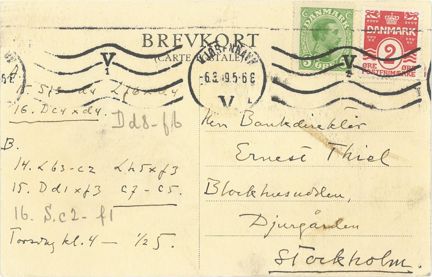 BREVKORT
(CARTE POSTALE)
KJØBENHAVN
DANMARK
5 ØRE
DANMARK
2
ØRE ØRE
POSTFRIMÆRKE
V
1
V
16. Dc4xd4
Dd8-f6
B.
14. Lb3-c2 Lh5xf3
15. Dd1xf3 c7-c5.
16. S.c2-f1
Torsdag kl. 4 — 1/2 5.
Herr Bankdirektör
Ernest Thiel
Blockhusudden,
Djurgården
Stockholm.